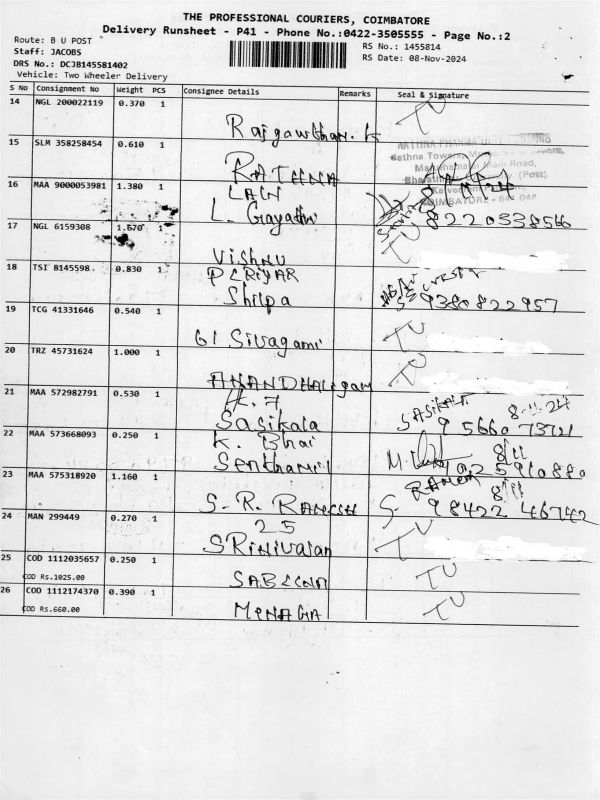 THE PROFESSIONAL COURIERS, COIMBATORE
Delivery Runsheet - P41 - Phone No.:0422-3505555 - Page No.:2
Route: B U POST
Staff: JACOBS
DRS No.: DCJB145581402
Vehicle: Two Wheeler Delivery
RS No.: 1455814
RS Date: 08-Nov-2024
S No Consignment No Weight PCS Consignee Details Remarks Seal & Signature
14 NGL 200022119 0.370 1 TU
15 SLM 358258454 0.610 1 RATHNA
Sathna Towers, Road,
(Post)
COIMBATORE - 641
16 MAA 9000053981 1.380 1 LAW
L. Gayathri 8220338566
17 NGL 6159308 1.670 1 Vishnu TU
18 TSI 8145598 0.830 1 PERIYAR
Shilpa 9380822957
19 TCG 41331646 0.540 1 G1 Sivagami TU
20 TRZ 45731624 1.000 1 TU
21 MAA 572982791 0.530 1 H. F
Sasikala SASIKALA 8-11-24
22 MAA 573668093 0.250 1 K. Bhai
M. 8/11
23 MAA 575318920 1.160 1 S. R. RAMESH RAMESH 8/11
S- 98422 46742
24 MAN 299449 0.270 1 25
SRinivasan TU
25 COD 1112035657 0.250 1 SABEENA TU
COD Rs.1025.00
26 COD 1112174370 0.390 1 MENAGA TU
COD Rs.660.00